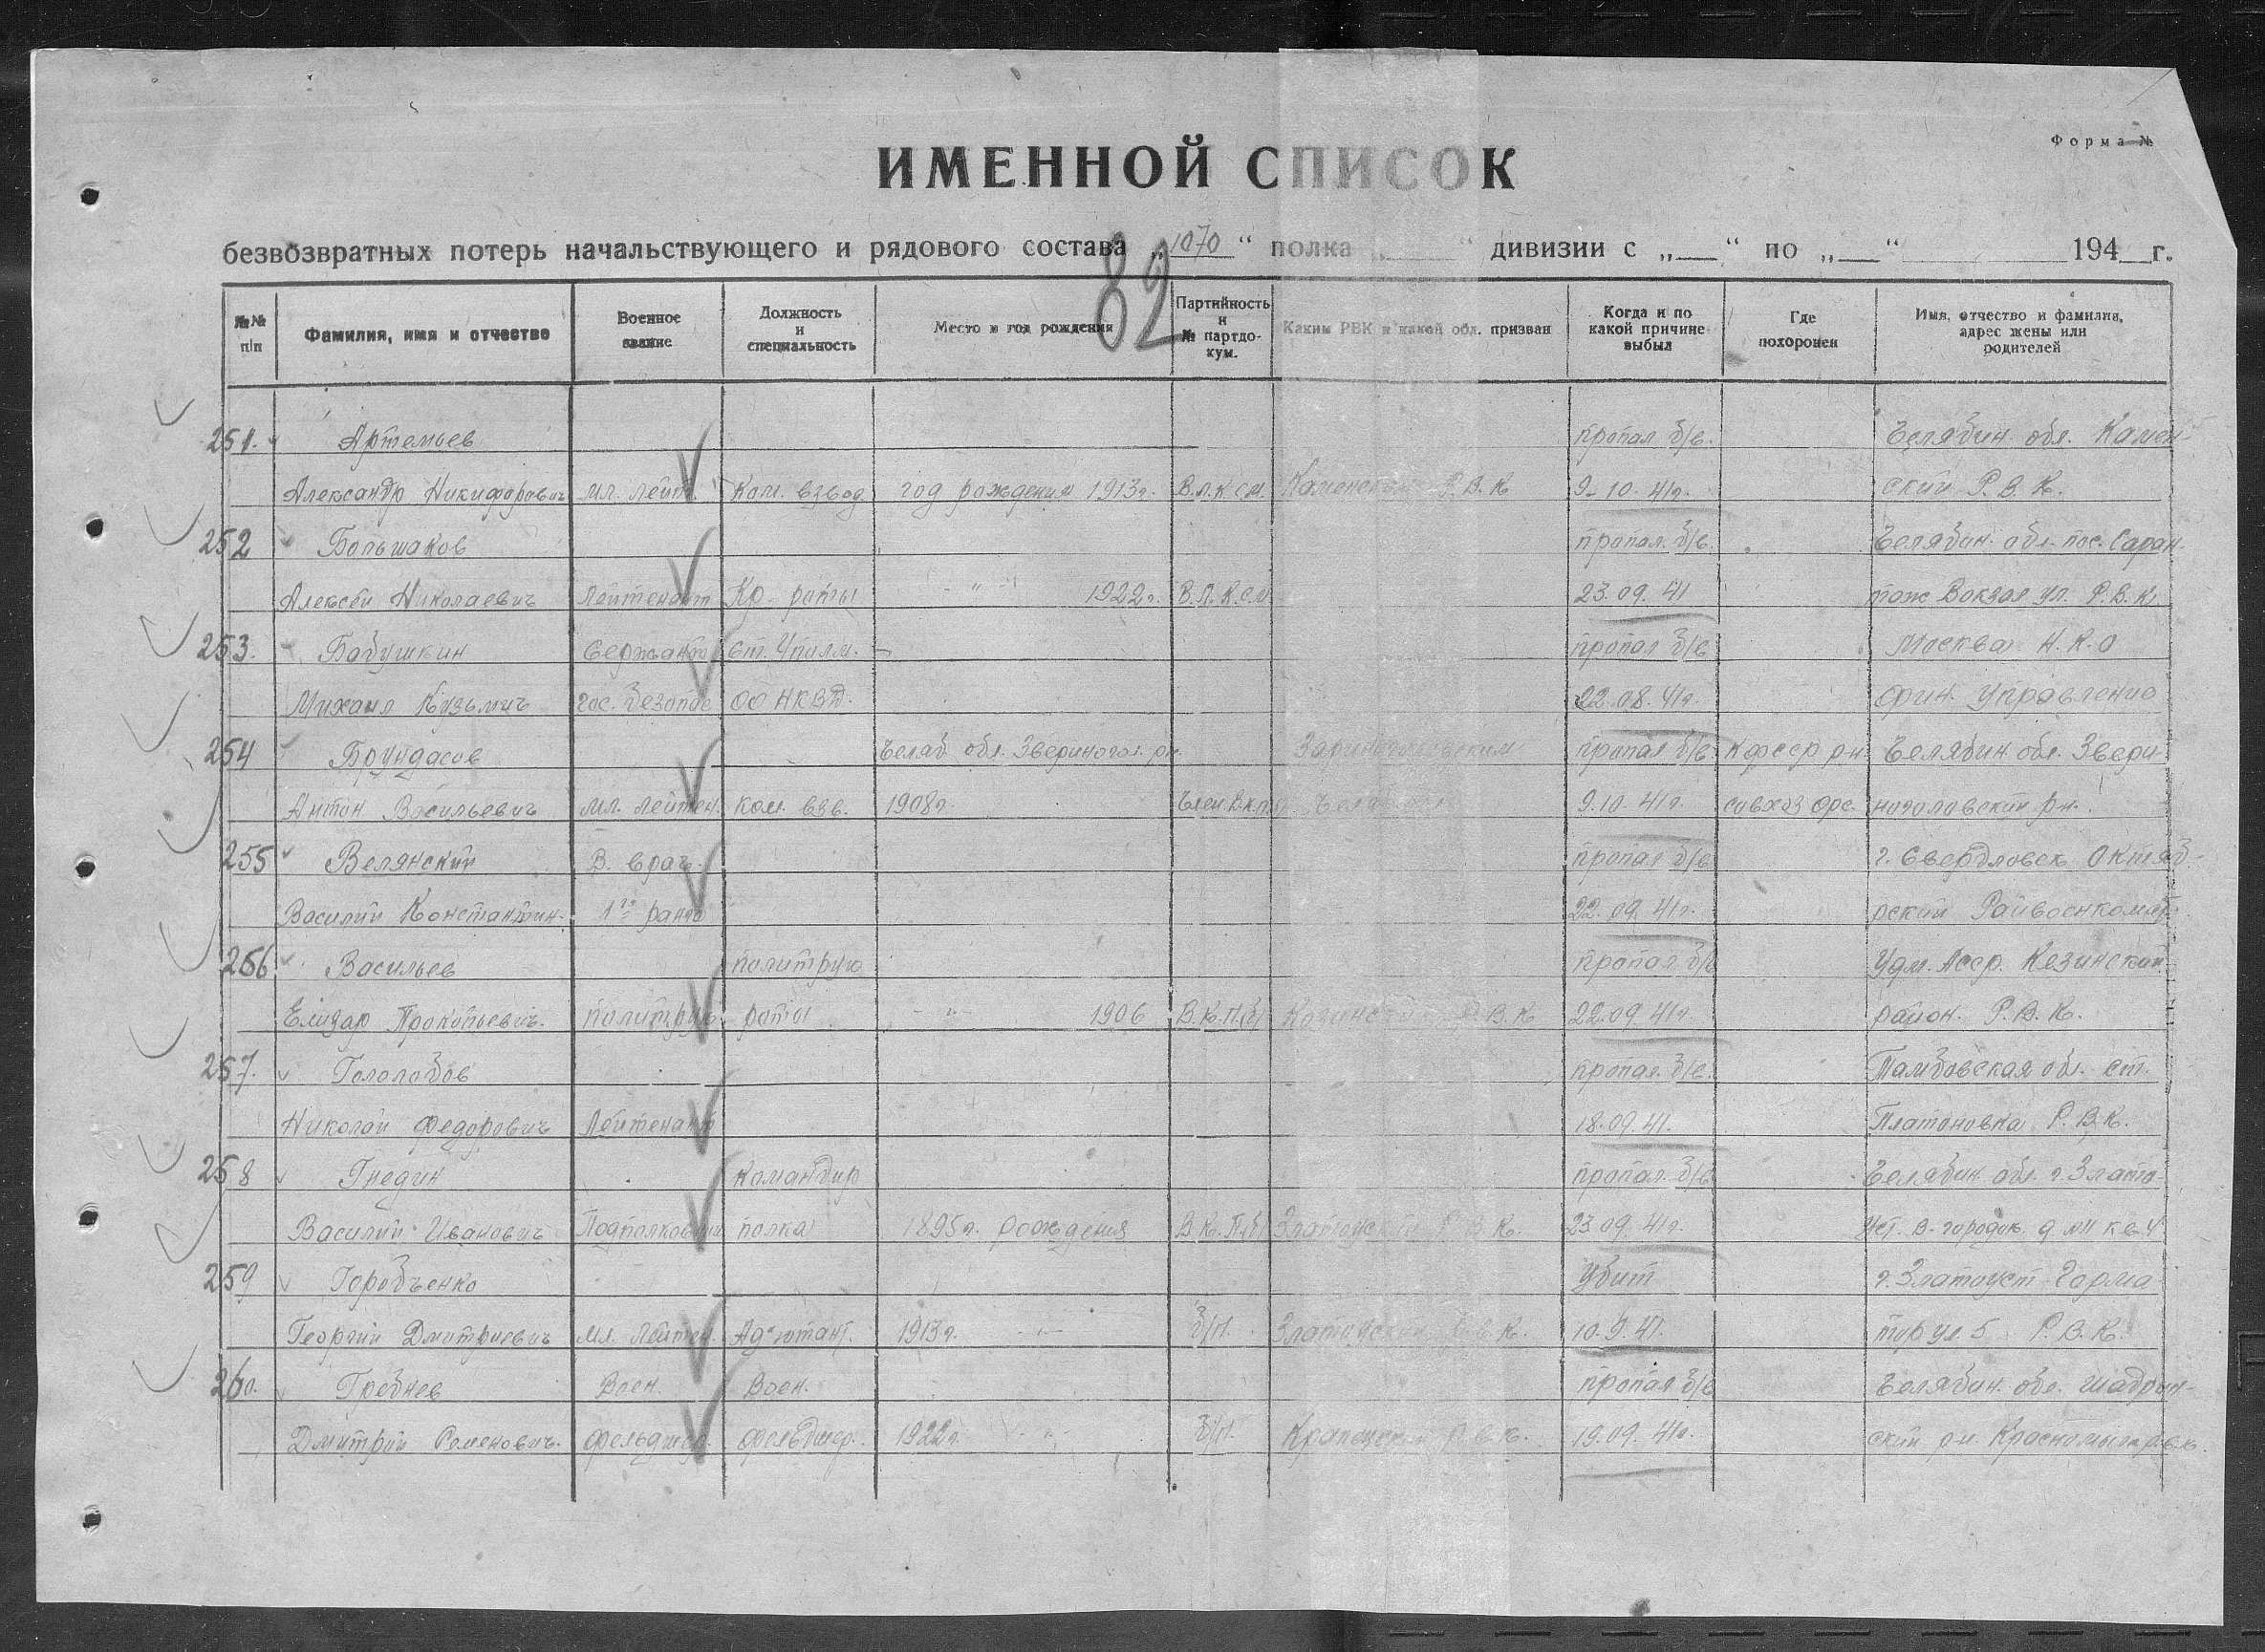 Форма №
ИМЕННОЙ СПИСОК
безвозвратных потерь начальствующего и рядового состава „1070“ полка „ “ дивизии с „ “ по „ “ 194 г.
82
№№ п/п Фамилия, имя и отчество Военное звание Должность и специальность Место и год рождения Партийность и № партдокум. Каким РВК и какой обл. призван Когда и по какой причине выбыл Где похоронен Имя, отчество и фамилия, адрес жены или родителей
251. Артемьев пропал б/в. Челябин. обл. Камен-
Александр Никифорович мл. лейт. Ком. взвод. год рождения 1913г. В.Л.К.С.М. Каменским Р.В.К. 9-10-41г. ский Р.В.К.
252 Большаков пропал. б/в. Челябин. обл. пос.
Алексей Николаевич Лейтенант Кр роты - " - 1922г. В.Л.К.С.М 23.09.41 Вокзал ул. Р.В.К.
253. Бабушкин Сержант Ст. Упплм. пропал б/в Москва Н.К.О
Михаил Кузьмич гос. безопас ОО НКВД. 22.08.41г. Фин. Управление
254 Брундасов Челяб обл. Звериногол. рн. пропал б/в КФССР рн. Челябин. обл. Звери-
Антон Васильевич мл. лейтен. ком. взв. 1908г. Член В.к.п. 9.10-41г. совхоз ноголовский рн.
255 Велянский В. врач. пропал б/в г. Свердловск Октяб-
Василий Константин. 1го ранга 22.09.41г. рский Райвоенкомат.
256 Васильев политрук пропал б/в Удм. Асср. Кезинский
Елизар Прокопьевич. политрук роты - " - 1906 В.К.П.(б) Р.В.К. 22.09.41г. район. Р.В.К.
257. Гололобов пропал. б/в. Тамбовская обл. ст.
Николай Федорович Лейтенант 18.09.41. Платоновка Р.В.К.
258 Гнедин командир пропал. б/в Челябин. обл. г. Злато-
Василий Иванович Подполковник полка 1895г. рождения В.К.П.(б) Златоустский Р.В.К. 23.09.41г. уст. В-городок. д
259 Горобченко Убит г. Златоуст
Георгий Дмитриевич мл. Лейтен. Адьютант. 1913г. - " - б/п. Златоустский Р.В.К. 10.9.41. ул 5 Р.В.К.
260. Гребнев Воен. Воен. пропал б/в Челябин. обл. Шадрин-
Дмитрий Семенович. фельдшер. фельдшер. 1922г. - " - б/п. Р.В.К. 19.09.41г. ский рн.